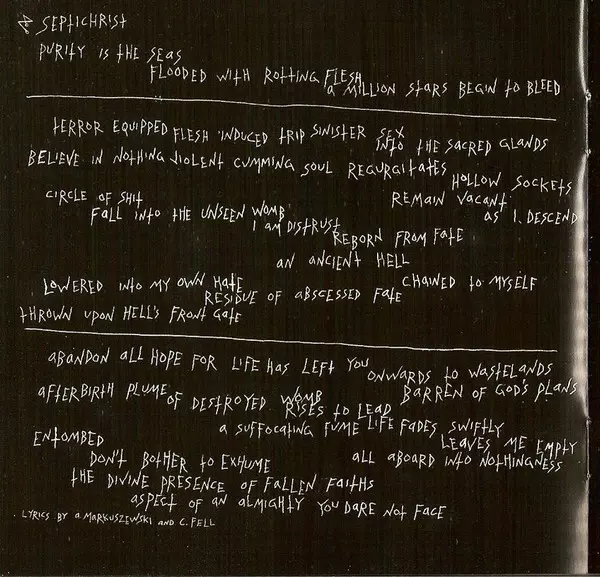 SEPTICHRIST
PURITY IS THE SEAS
FLOODED WITH ROTTING FLESH
A MILLION STARS BEGIN TO BLEED
TERROR EQUIPPED FLESH INDUCED TRIP SINISTER SEX
INTO THE SACRED GLANDS
BELIEVE IN NOTHING VIOLENT CUMMING SOUL REGURGITATES
HOLLOW SOCKETS
REMAIN VACANT
CIRCLE OF SHIT
AS I DESCEND
FALL INTO THE UNSEEN WOMB
I AM DISTRUST
REBORN FROM FATE
AN ANCIENT HELL
LOWERED INTO MY OWN HATE
CHAINED TO MYSELF
RESIDUE OF ABSCESSED FATE
THROWN UPON HELL'S FRONT GATE
ABANDON ALL HOPE FOR LIFE HAS LEFT YOU
ONWARDS TO WASTELANDS
BARREN OF GOD'S PLANS
AFTERBIRTH PLUME
OF DESTROYED WOMB
RISES TO LEAD
A SUFFOCATING FUME LIFE FADES SWIFTLY
LEAVES ME EMPTY
ENTOMBED
DON'T BOTHER TO EXHUME
ALL ABOARD INTO NOTHINGNESS
THE DIVINE PRESENCE OF FALLEN FAITHS
ASPECT OF AN ALMIGHTY YOU DARE NOT FACE
LYRICS BY A. MARKUSZEWSKI AND C. FELL